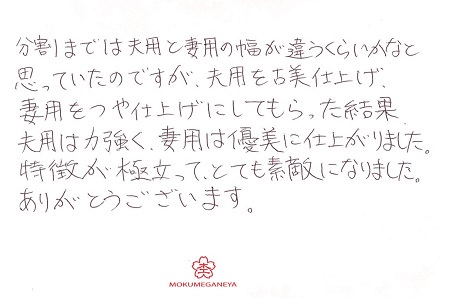 分割までは夫用と妻用の幅が違うくらいかなと
思っていたのですが、夫用を古美仕上げ、
妻用をつや仕上げにしてもらった結果
夫用は力強く、妻用は優美に仕上がりました。
特徴が極立って、とても素敵になりました。
ありがとうございます。
杢
MOKUMEGANEYA